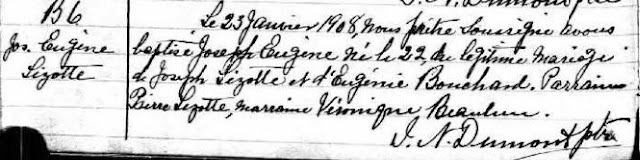 B6
Jos. Eugène
Lizotte
Le 23 Janvier 1908, nous prêtre soussigné avons
baptisé Joseph Eugène né le 22, du légitime mariage
de Joseph Lizotte et d'Eugénie Bouchard. Parrain
Pierre Lizotte, marraine Véronique Beaulieu.
J. N. Dumont ptre